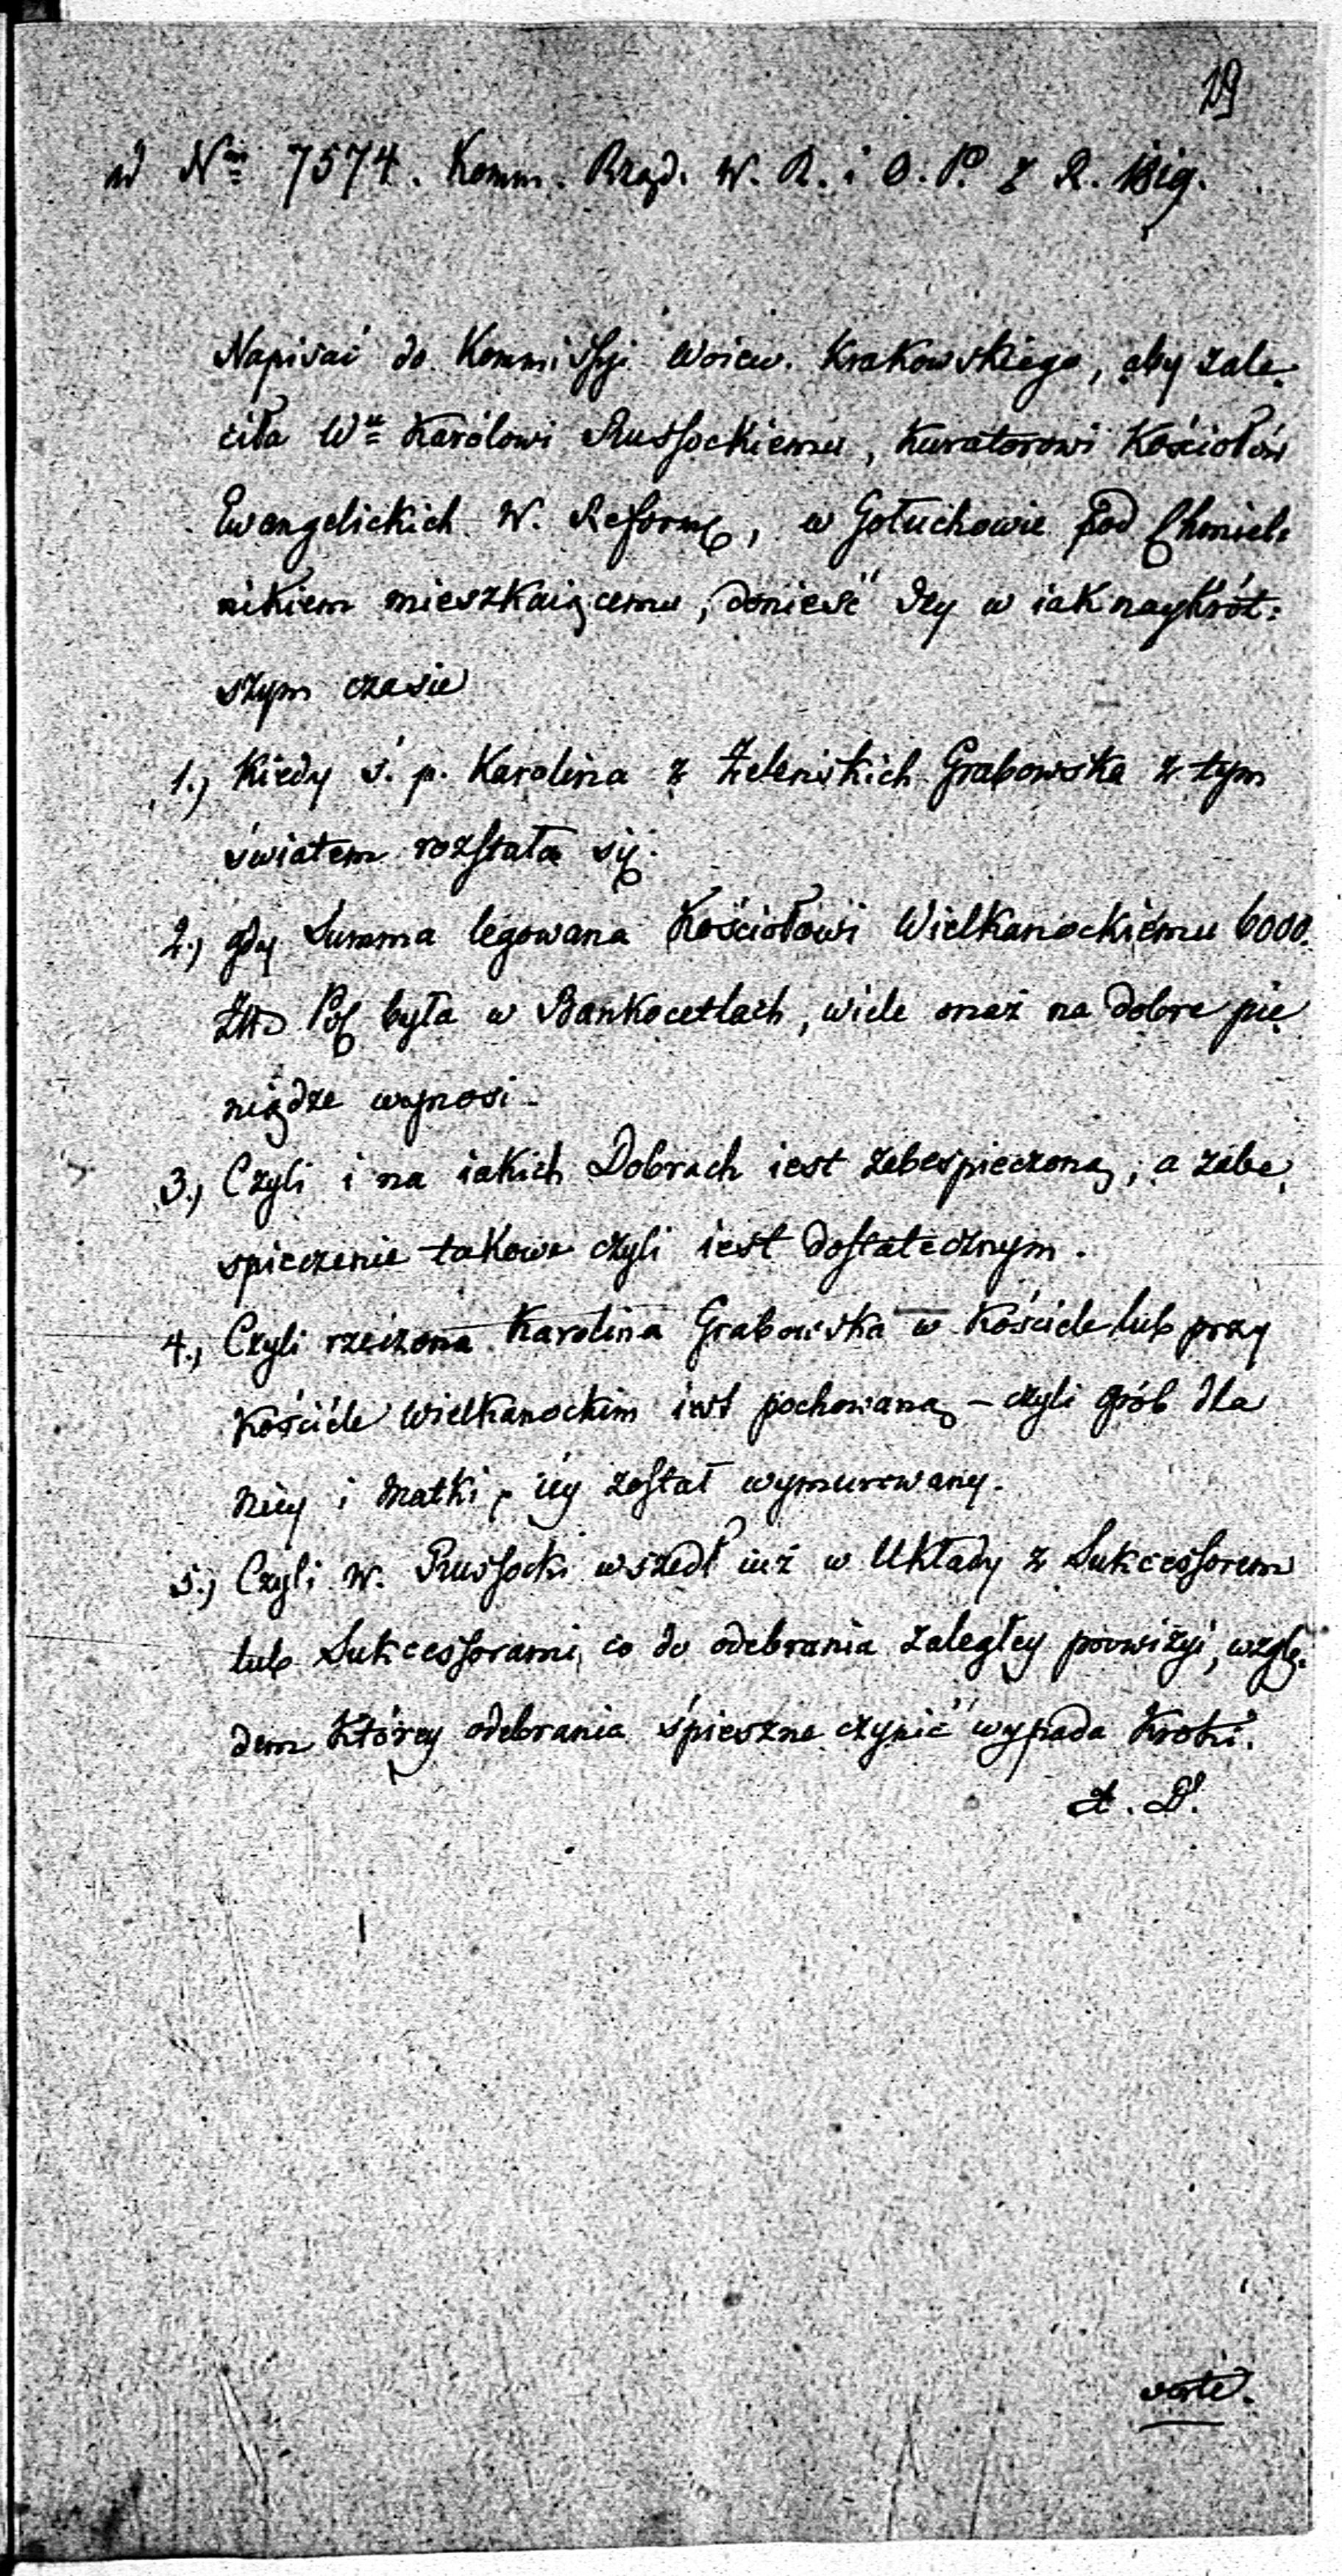 19
ad Nm 7574. Komm. Rząd. W. R. i O. P. z R. bieg.
Napisać do Kommissyi Woiew. Krakowskiego, aby zale-
ciła Wu Karólowi Russockiemu, Kuratorowi Kościołów
Ewangelickich W. Reform, w Gołuchowie pod Chmiel-
nikiem mieszkaiącemu, donieść Jey w iak naykrót-
szym czasie
1.) Kiedy ś. p. Karolina z Zeleńskich Grabowska z tym
światem rozstała się.
2.) gdy Summa legowana Kościołowi Wielkanockiemu 6000.
Złł Pol była w Bankocetlach, wiele oraz na dobre pie-
niądze wynosi -
3.) Czyli i na iakich Dobrach iest zabespieczoną, a zabe-
spieczenie takowe czyli iest dostatecznym.
4.) Czyli rzeczona Karolina Grabowska w Kościele lub przy
Kościele Wielkanockim iest pochowaną - czyli grób dla
niey i Matki iey został wymurowany.
5.) Czyli W. Russocki wszedł iuż w Układy z Sukcessorem
lub Sukcessorami, co do odebrania zaległey prowizyi, wzglę-
dem którey odebrania śpieszne czynić wypada kroki.
A. D.
verte.